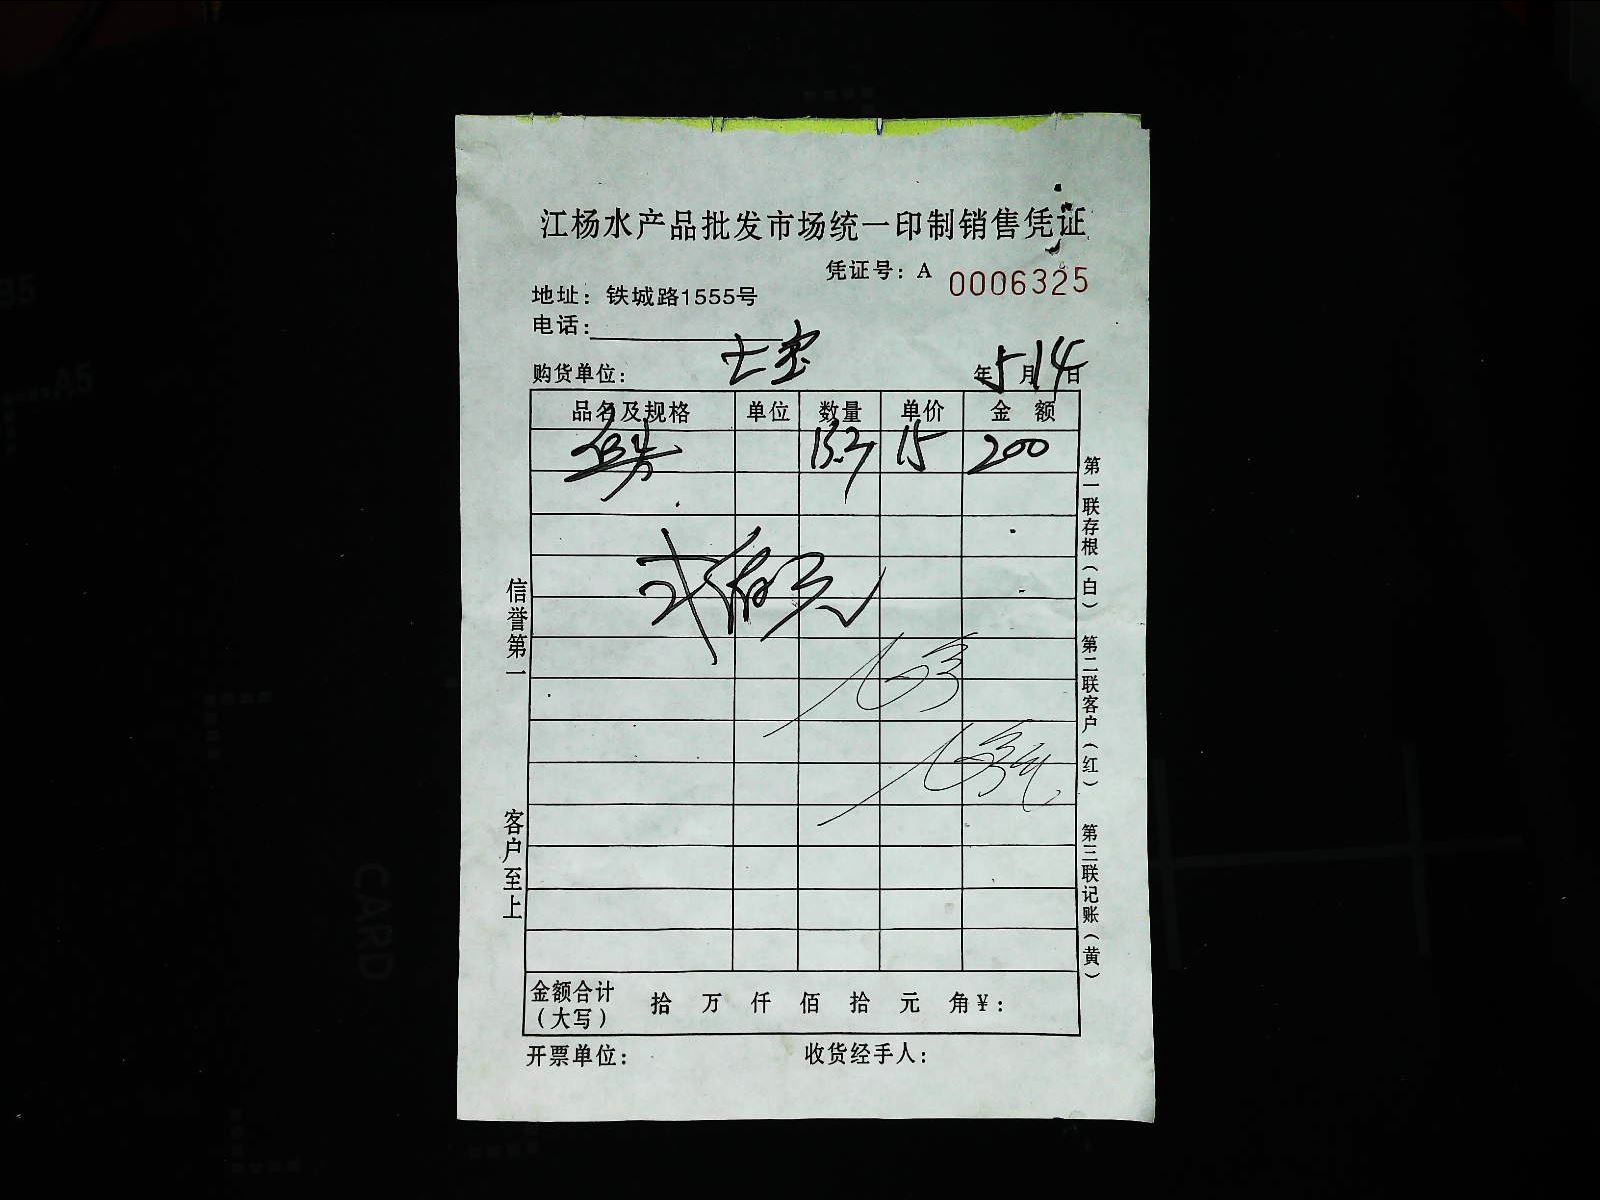 江杨水产品批发市场统一印制销售凭证
凭证号：A 0006325
地址：铁城路1555号
电话：
购货单位： 七宝 年5月14日
品名及规格 单位 数量 单价 金 额
15 200
元
信誉第一
客户至上
第一联存根（白）
第二联客户（红）
第三联记账（黄）
金额合计（大写） 拾 万 仟 佰 拾 元 角¥：
开票单位： 收货经手人：